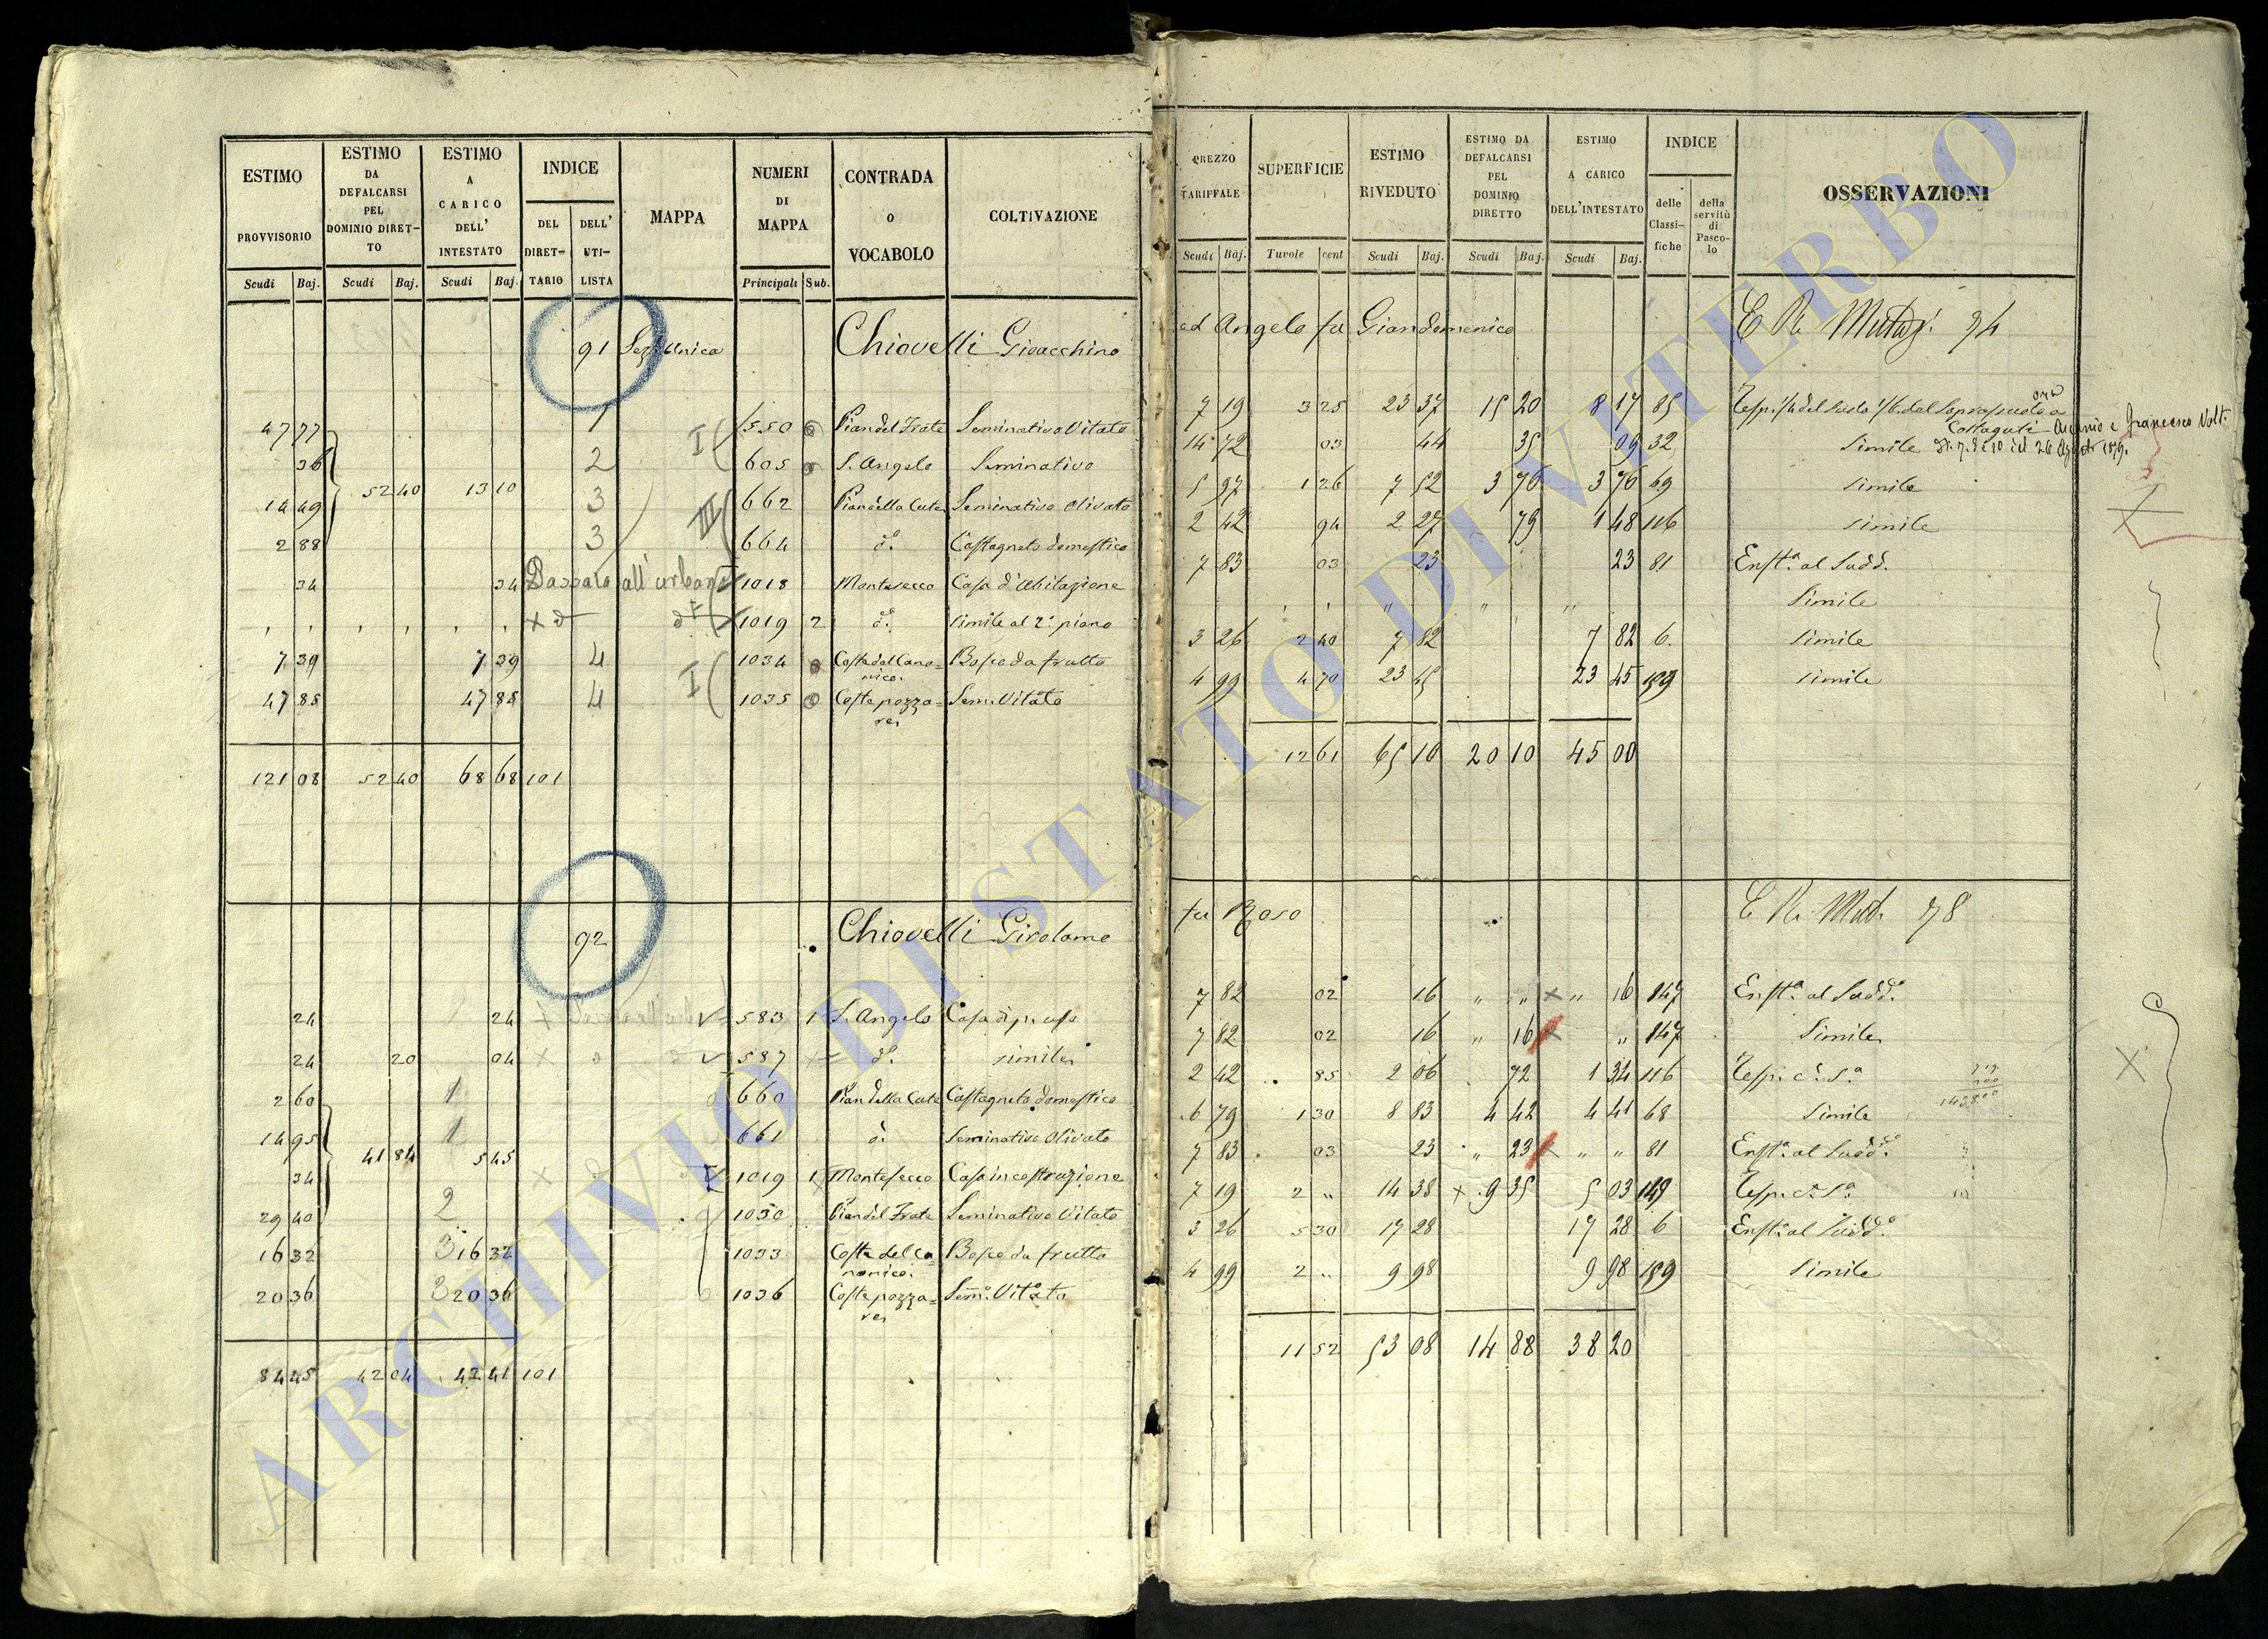 ESTIMO PROVVISORIO Scudi Baj.
ESTIMO DA DEFALCARSI PEL DOMINIO DIRETTO Scudi Baj.
ESTIMO A CARICO DELL' INTESTATO Scudi Baj.
INDICE DEL DIRETTARIO DELL' UTILISTA
MAPPA
NUMERI DI MAPPA Principali Sub.
CONTRADA o VOCABOLO
COLTIVAZIONE
PREZZO TARIFFALE Scudi Baj.
SUPERFICIE Tavole cent
ESTIMO RIVEDUTO Scudi Baj.
ESTIMO DA DEFALCARSI PEL DOMINIO DIRETTO Scudi Baj.
ESTIMO A CARICO DELL'INTESTATO Scudi Baj.
INDICE delle Classifiche della servitù di Pascolo
OSSERVAZIONI
91 Sez. Unica Chiovelli Gioacchino ed Angelo fu Giandomenico
47 77 1 I 550 Pian del Frate Seminativo Vitato 7 19 3 25 23 37 15 20 8 17 85
36 2 605 S. Angelo Seminativo 14 72 03 44 35 09 32 Simile
52 40 13 10
14 49 3 III 662 Pian della Cute Seminativo Olivato 5 97 1 26 7 52 3 76 3 76 69 Simile
2 88 3 664 d.o Castagneto domestico 2 42 94 2 27 79 1 48 116 Simile
34 34 Passato all'urbano 1018 Montesecco Casa d'abitazione 7 83 03 23 23 81 Enfta. al Sudd.
1019 2 d.o simile al 2.o piano Simile
7 39 7 39 4 1034 Costa del Canonico Bosco da frutto 3 26 2 40 7 82 7 82 6 Simile
47 85 47 85 4 I 1035 Costa pozzares Sem. Vitato 4 99 4 70 23 45 23 45 159 Simile
121 08 52 40 68 68 101 12 61 65 10 20 10 45 00
92 Chiovelli Girolamo fu Roso
24 24 583 1 S. Angelo Casa di p. uso 7 82 02 16 " " " 16 147 Enfta. al Sudd.o
24 20 04 587 d.o simile 7 82 02 16 " 16 " 147 Simile
2 60 1 660 Pian della Cute Castagneto domestico 2 42 85 2 06 72 1 34 116
14 95 1 661 d.o Seminativo Olivato 6 79 1 30 8 83 4 42 4 41 68 Simile
41 84 5 45
34 1019 1 Montesecco Casa in costruzione 7 83 03 23 " 23 " " 81 Enfta. al Sudd.o
29 40 2 1030 Pian del Frate Seminativo Vitato 7 19 2 " 14 38 9 35 5 03 149
16 32 3 16 32 1033 Costa del Canonico Bosco da frutto 3 26 5 30 17 28 17 28 6 Enfta. al Sudd.o
20 36 3 20 36 1036 Costa pozzares Sem. Vitato 4 99 2 " 9 98 9 98 159 Simile
84 45 42 04 42 41 101 11 52 53 08 14 88 38 20
ARCHIVIO DI STATO DI VITERBO